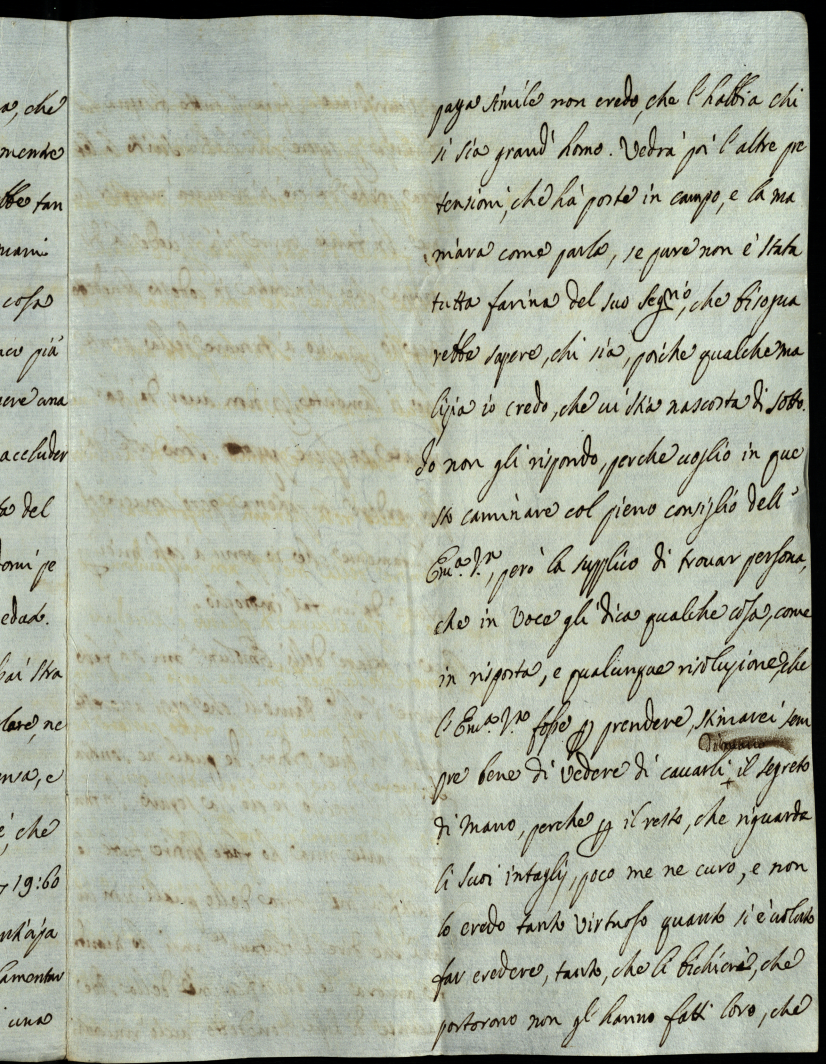 a, che
mente
bbe tan
mani
cosa
piu
ere una
accluder
del
domi pe
edad.
hai stra
lare, ne
ensa, e
e', che
19:60
ntaja
lamentar
una
paga simile non credo, che l'habbia chi
si sia grand' homo. Vedrà poi l'altre pre
tensioni, che hà poste in campo, e la ma
niera come parla, se pure non è stata
tutta farina del suo segno, che bisogna
rebbe sapere, chi sia, poiche qualche ma
lizia io credo, che vi stia nascosta di sotto.
Io non gli rispondo, perche voglio in que
sto caminare col pieno consiglio dell'
Em.a V.ra, però la supplico di trovar persona,
che in voce gli dica qualche cosa, come
in risposta, e qualunque risoluzione, che
l'Em.a V.ra fosse p prendere, stimarei sem
pre bene di vedere di cavarli il segreto
di mano, perche p il resto, che riguarda
li suoi intaglij, poco me ne curo, e non
lo credo tanto virtuoso quanto si è voluto
far credere, tanto, che li bichieri, che
portorono non gl' hanno fatti loro, che